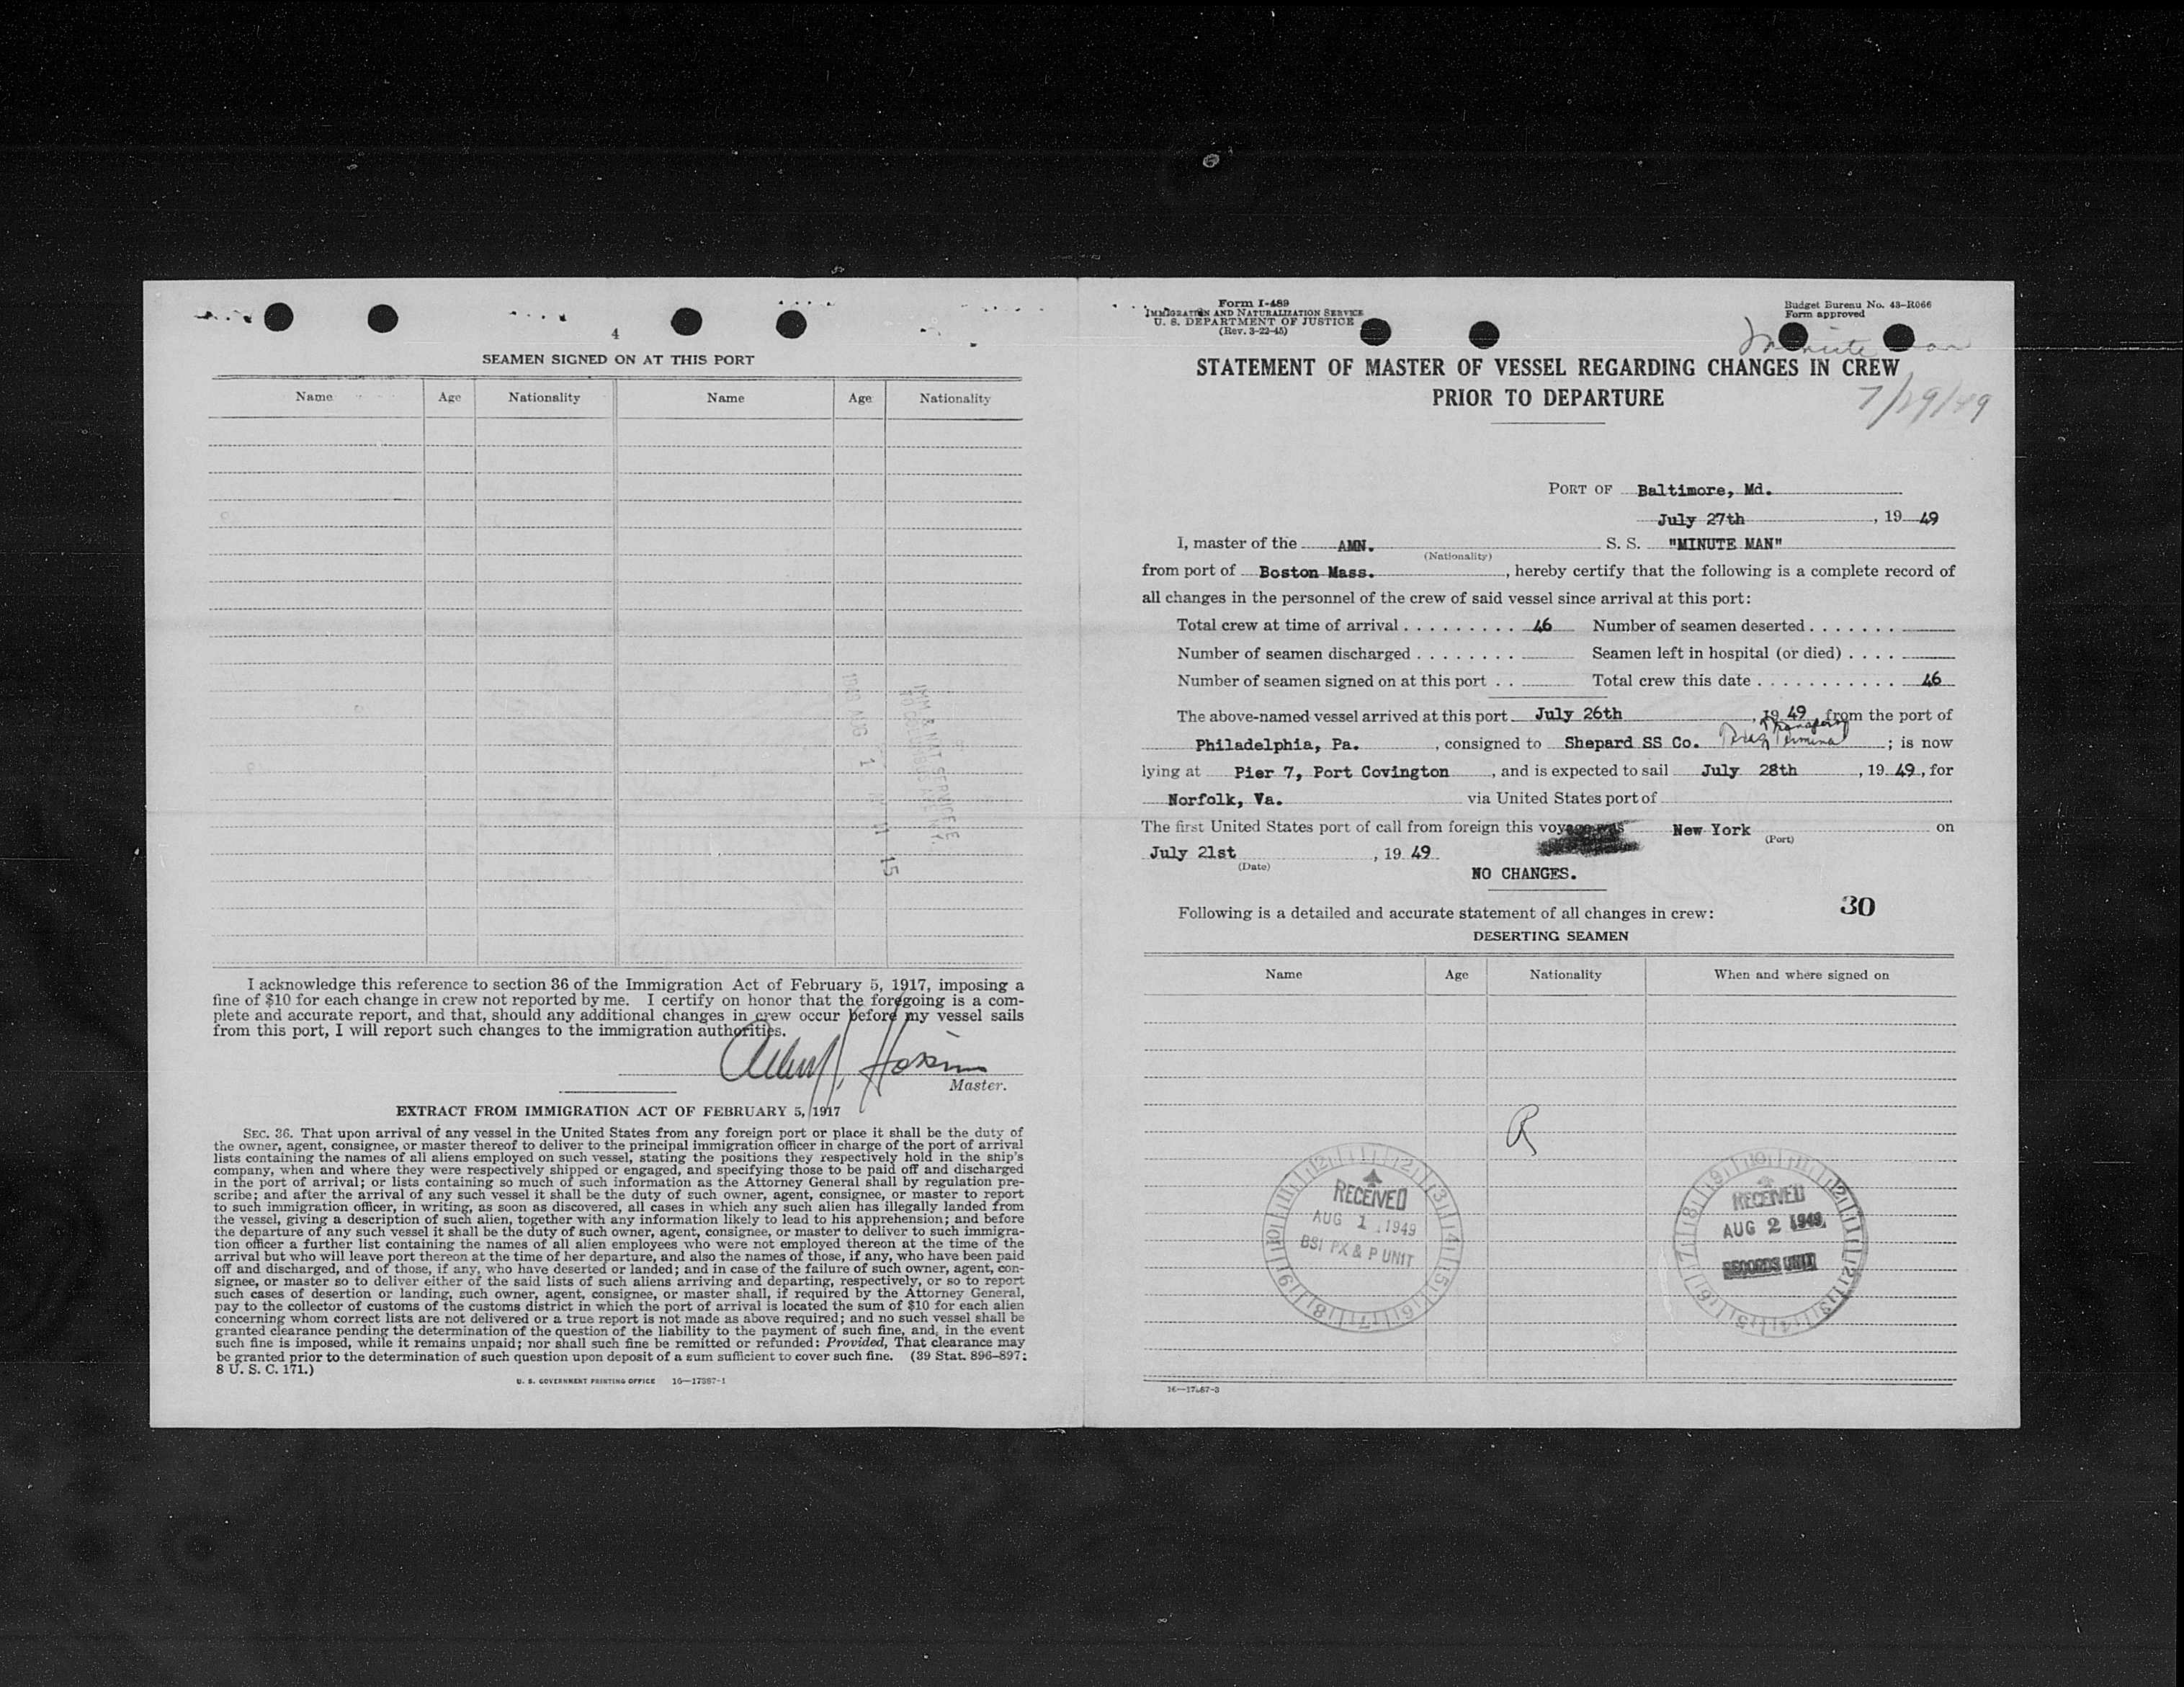 4
SEAMEN SIGNED ON AT THIS PORT
Name Age Nationality Name Age Nationality
1949 AUG 1 11 15
IMM & NAT SERVICE
I acknowledge this reference to section 36 of the Immigration Act of February 5, 1917, imposing a
fine of $10 for each change in crew not reported by me. I certify on honor that the foregoing is a com-
plete and accurate report, and that, should any additional changes in crew occur before my vessel sails
from this port, I will report such changes to the immigration authorities.
Master.
EXTRACT FROM IMMIGRATION ACT OF FEBRUARY 5, 1917
SEC. 36. That upon arrival of any vessel in the United States from any foreign port or place it shall be the duty of
the owner, agent, consignee, or master thereof to deliver to the principal immigration officer in charge of the port of arrival
lists containing the names of all aliens employed on such vessel, stating the positions they respectively hold in the ship's
company, when and where they were respectively shipped or engaged, and specifying those to be paid off and discharged
in the port of arrival; or lists containing so much of such information as the Attorney General shall by regulation pre-
scribe; and after the arrival of any such vessel it shall be the duty of such owner, agent, consignee, or master to report
to such immigration officer, in writing, as soon as discovered, all cases in which any such alien has illegally landed from
the vessel, giving a description of such alien, together with any information likely to lead to his apprehension; and before
the departure of any such vessel it shall be the duty of such owner, agent, consignee, or master to deliver to such immigra-
tion officer a further list containing the names of all alien employees who were not employed thereon at the time of the
arrival but who will leave port thereon at the time of her departure, and also the names of those, if any, who have been paid
off and discharged, and of those, if any, who have deserted or landed; and in case of the failure of such owner, agent, con-
signee, or master so to deliver either of the said lists of such aliens arriving and departing, respectively, or so to report
such cases of desertion or landing, such owner, agent, consignee, or master shall, if required by the Attorney General,
pay to the collector of customs of the customs district in which the port of arrival is located the sum of $10 for each alien
concerning whom correct lists are not delivered or a true report is not made as above required; and no such vessel shall be
granted clearance pending the determination of the question of the liability to the payment of such fine, and, in the event
such fine is imposed, while it remains unpaid; nor shall such fine be remitted or refunded: Provided, That clearance may
be granted prior to the determination of such question upon deposit of a sum sufficient to cover such fine. (39 Stat. 896-897;
8 U. S. C. 171.)
U. S. GOVERNMENT PRINTING OFFICE
Form I-489
IMMIGRATION AND NATURALIZATION SERVICE
U. S. DEPARTMENT OF JUSTICE
(Rev. 3-22-45)
Budget Bureau No. 43-R066
Form approved
Minute
STATEMENT OF MASTER OF VESSEL REGARDING CHANGES IN CREW
PRIOR TO DEPARTURE
7/29/49
PORT OF Baltimore, Md.
July 27th, 19 49
I, master of the AMN. S. S. "MINUTE MAN"
(Nationality)
from port of Boston Mass., hereby certify that the following is a complete record of
all changes in the personnel of the crew of said vessel since arrival at this port:
Total crew at time of arrival . . . . . . . . . 46 Number of seamen deserted . . . . . . .
Number of seamen discharged . . . . . . . . Seamen left in hospital (or died) . . . .
Number of seamen signed on at this port . . Total crew this date . . . . . . . . . . . 46
The above-named vessel arrived at this port July 26th, 19 49 from the port of
Philadelphia, Pa., consigned to Shepard SS Co. Terminal; is now
lying at Pier 7, Port Covington, and is expected to sail July 28th, 19 49, for
Norfolk, Va. via United States port of
The first United States port of call from foreign this voyage was New York on
(Port)
July 21st, 19 49
(Date)
NO CHANGES.
Following is a detailed and accurate statement of all changes in crew:
30
DESERTING SEAMEN
Name Age Nationality When and where signed on
R
RECEIVED
AUG 1 1949
BSI PX & P UNIT
RECEIVED
AUG 2 1949
RECORDS UNIT